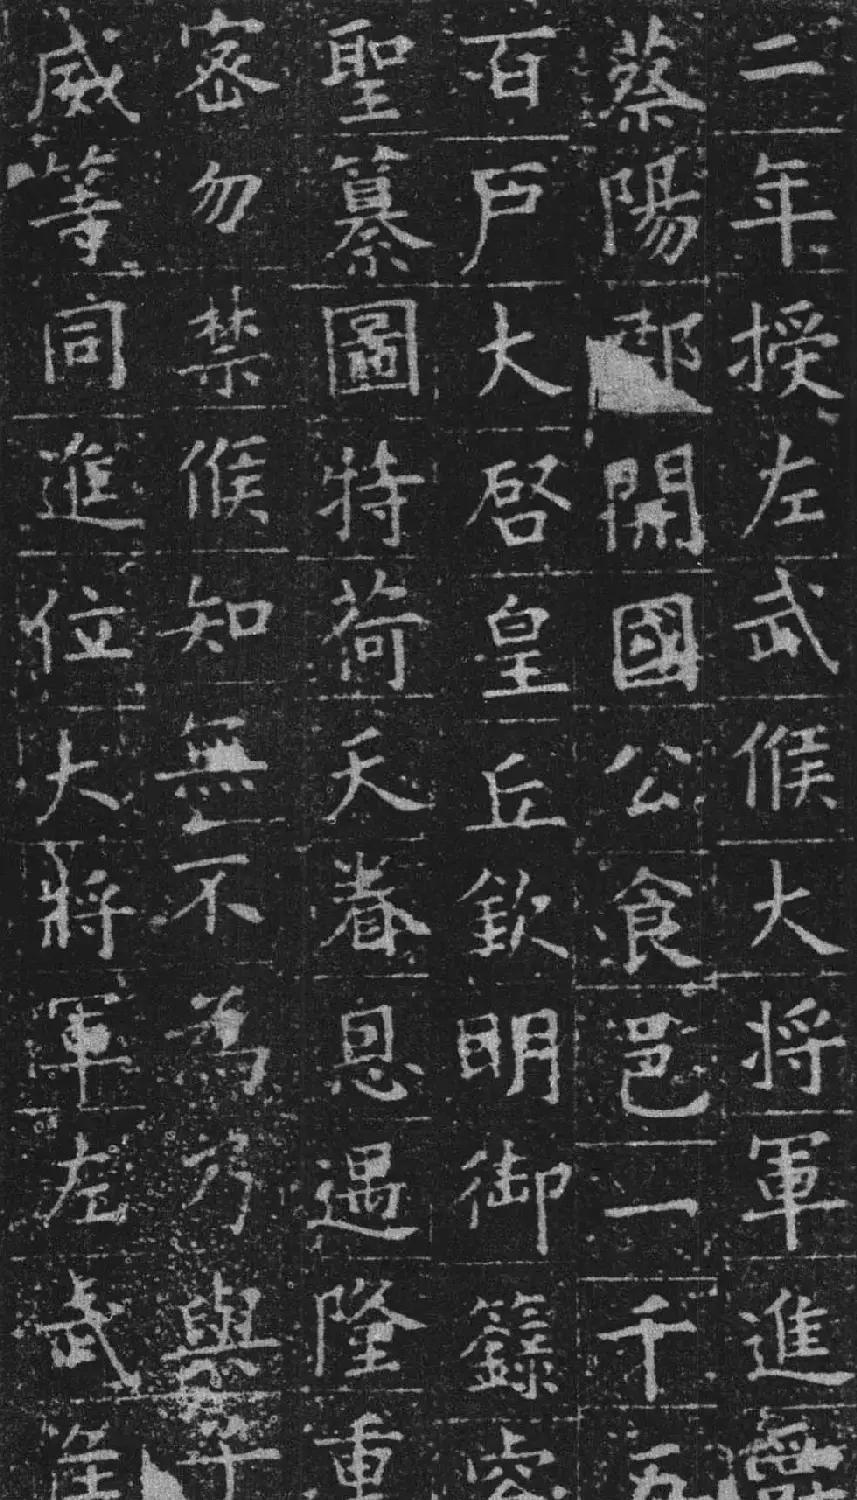 二年授左武候大將軍進爵
蔡陽郡開國公食邑一千五
百戶大啓皇丘欽明御籙睿
聖纂圖特荷天眷恩遇隆重
密勿禁候知無不為乃與
威等同進位大將軍左武